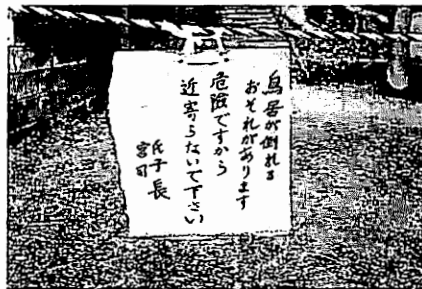 鳥居が倒れる
おそれがあります
危険ですから
近寄らないで下さい
氏子長
宮司